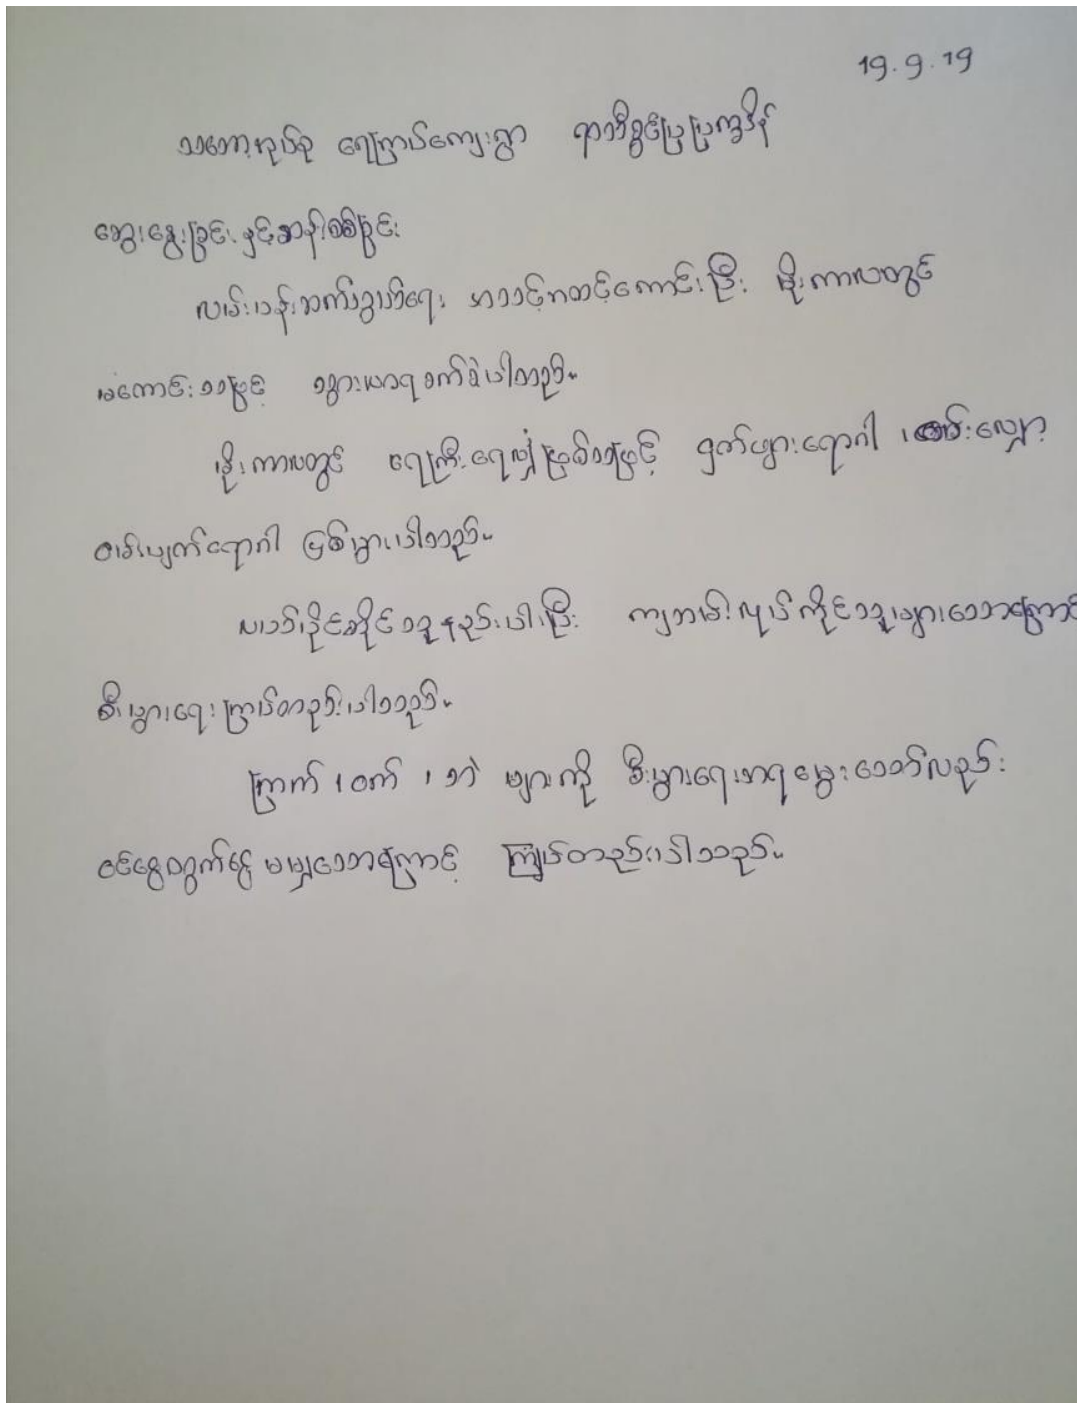 19.9.19
သဘော့လုပ်စု ရေကြာပ်ကျေးရွာ ရာသီခွင်ပြပြက္ခဒိန်
ဆွေးနွေးခြင်း နှင့်ဆန်းစစ်ခြင်း
လမ်းပန်းဆက်သွယ်ရေး အသင့်အတင့်ကောင်းပြီး မိုးကာလတွင်
မကောင်းသဖြင့် သွားလာရခက်ခဲပါသည်။
မိုးကာလတွင် ရေကြီးရေလျှံဖြစ်သဖြင့် ငှက်ဖျားရောဂါ ၊ ဝမ်းလျှော
ဝမ်းပျက်ရောဂါ ဖြစ်ပွားပါသည်။
လယ်ပိုင်ဆိုင်သူနည်းပါးပြီး ကျဘမ်းလုပ်ကိုင်သူများသောကြောင့်
စီးပွားရေးကြပ်တည်းပါသည်။
ကြက် ၊ ဝက် ၊ ဘဲ များကို စီးပွားရေးအရမွေးသော်လည်း
ဝင်ငွေထွက်ငွေ မမျှသောကြောင့် ကြပ်တည်းပါသည်။